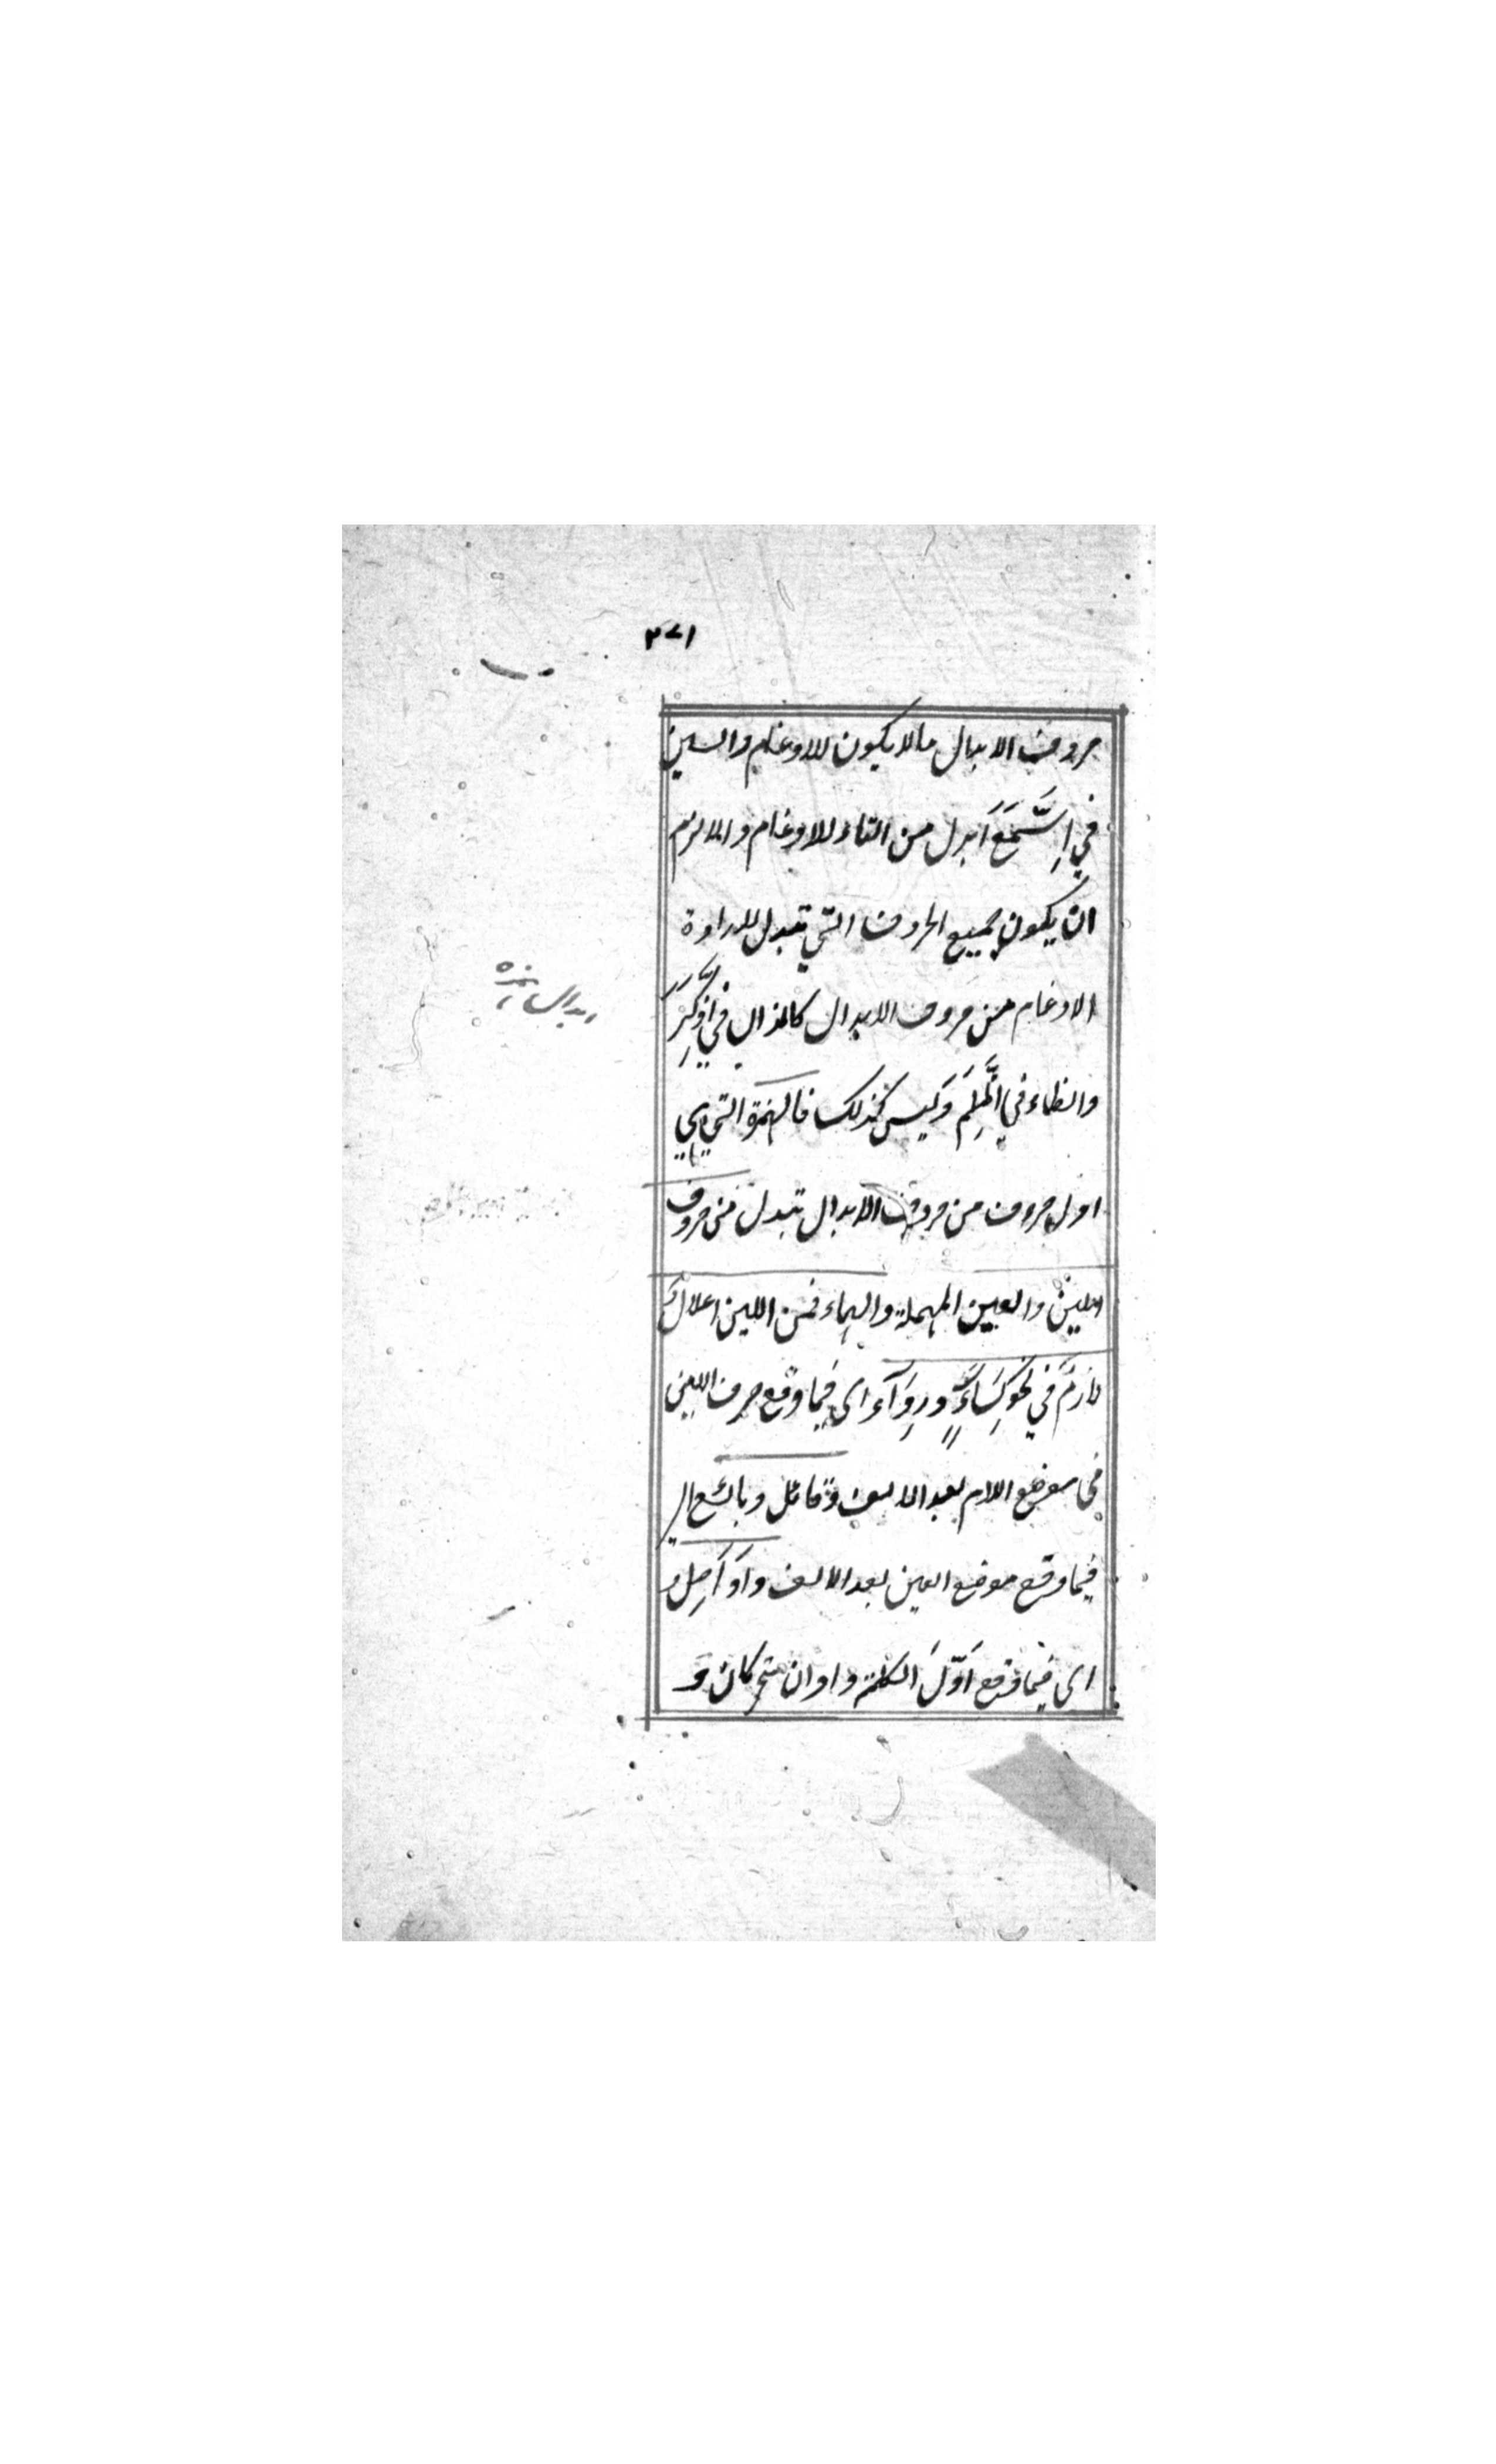 ١٧٣
حروف الابدال مالا يكون للادغام والسين
في اِسَّمَعَ اُبدل من التاء للادغام والا لزم
ان يكون جميع الحروف التي تبدل لارادة
الادغام من حروف الابدال كالذال في اِذَّكَرَ
والظاء في اِظَّلَمَ وَليس كذلك فالهمزة التي هي
اول حروف من حروف الابدال تبدل من حروف
اللين والعين المهملة والهاء فمن اللين اعلال
لازم في نحو كِسَاءٍ ورِدَآءٍ اى فيما وقع حرف اللين
في موضع اللام بعد الالف وقائل وبائع اى
فيما وقع موضع العين بعد الالف واَوَاصِل
اى فيما وقع اَوّلَ الكلمة واوان متحركان و
ابدال همزه